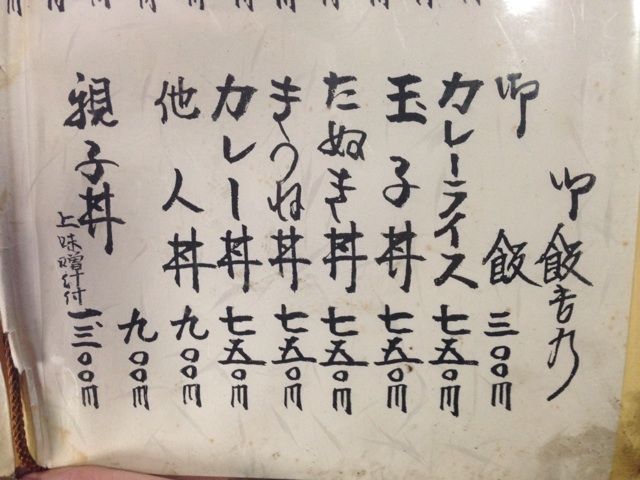 御飯もの
御飯 三〇〇円
カレーライス 七五〇円
玉子丼 七五〇円
たぬき丼 七五〇円
きつね丼 七五〇円
カレー丼 七五〇円
他人丼 九〇〇円
親子丼 九〇〇円
上味噌汁付 一、三〇〇円